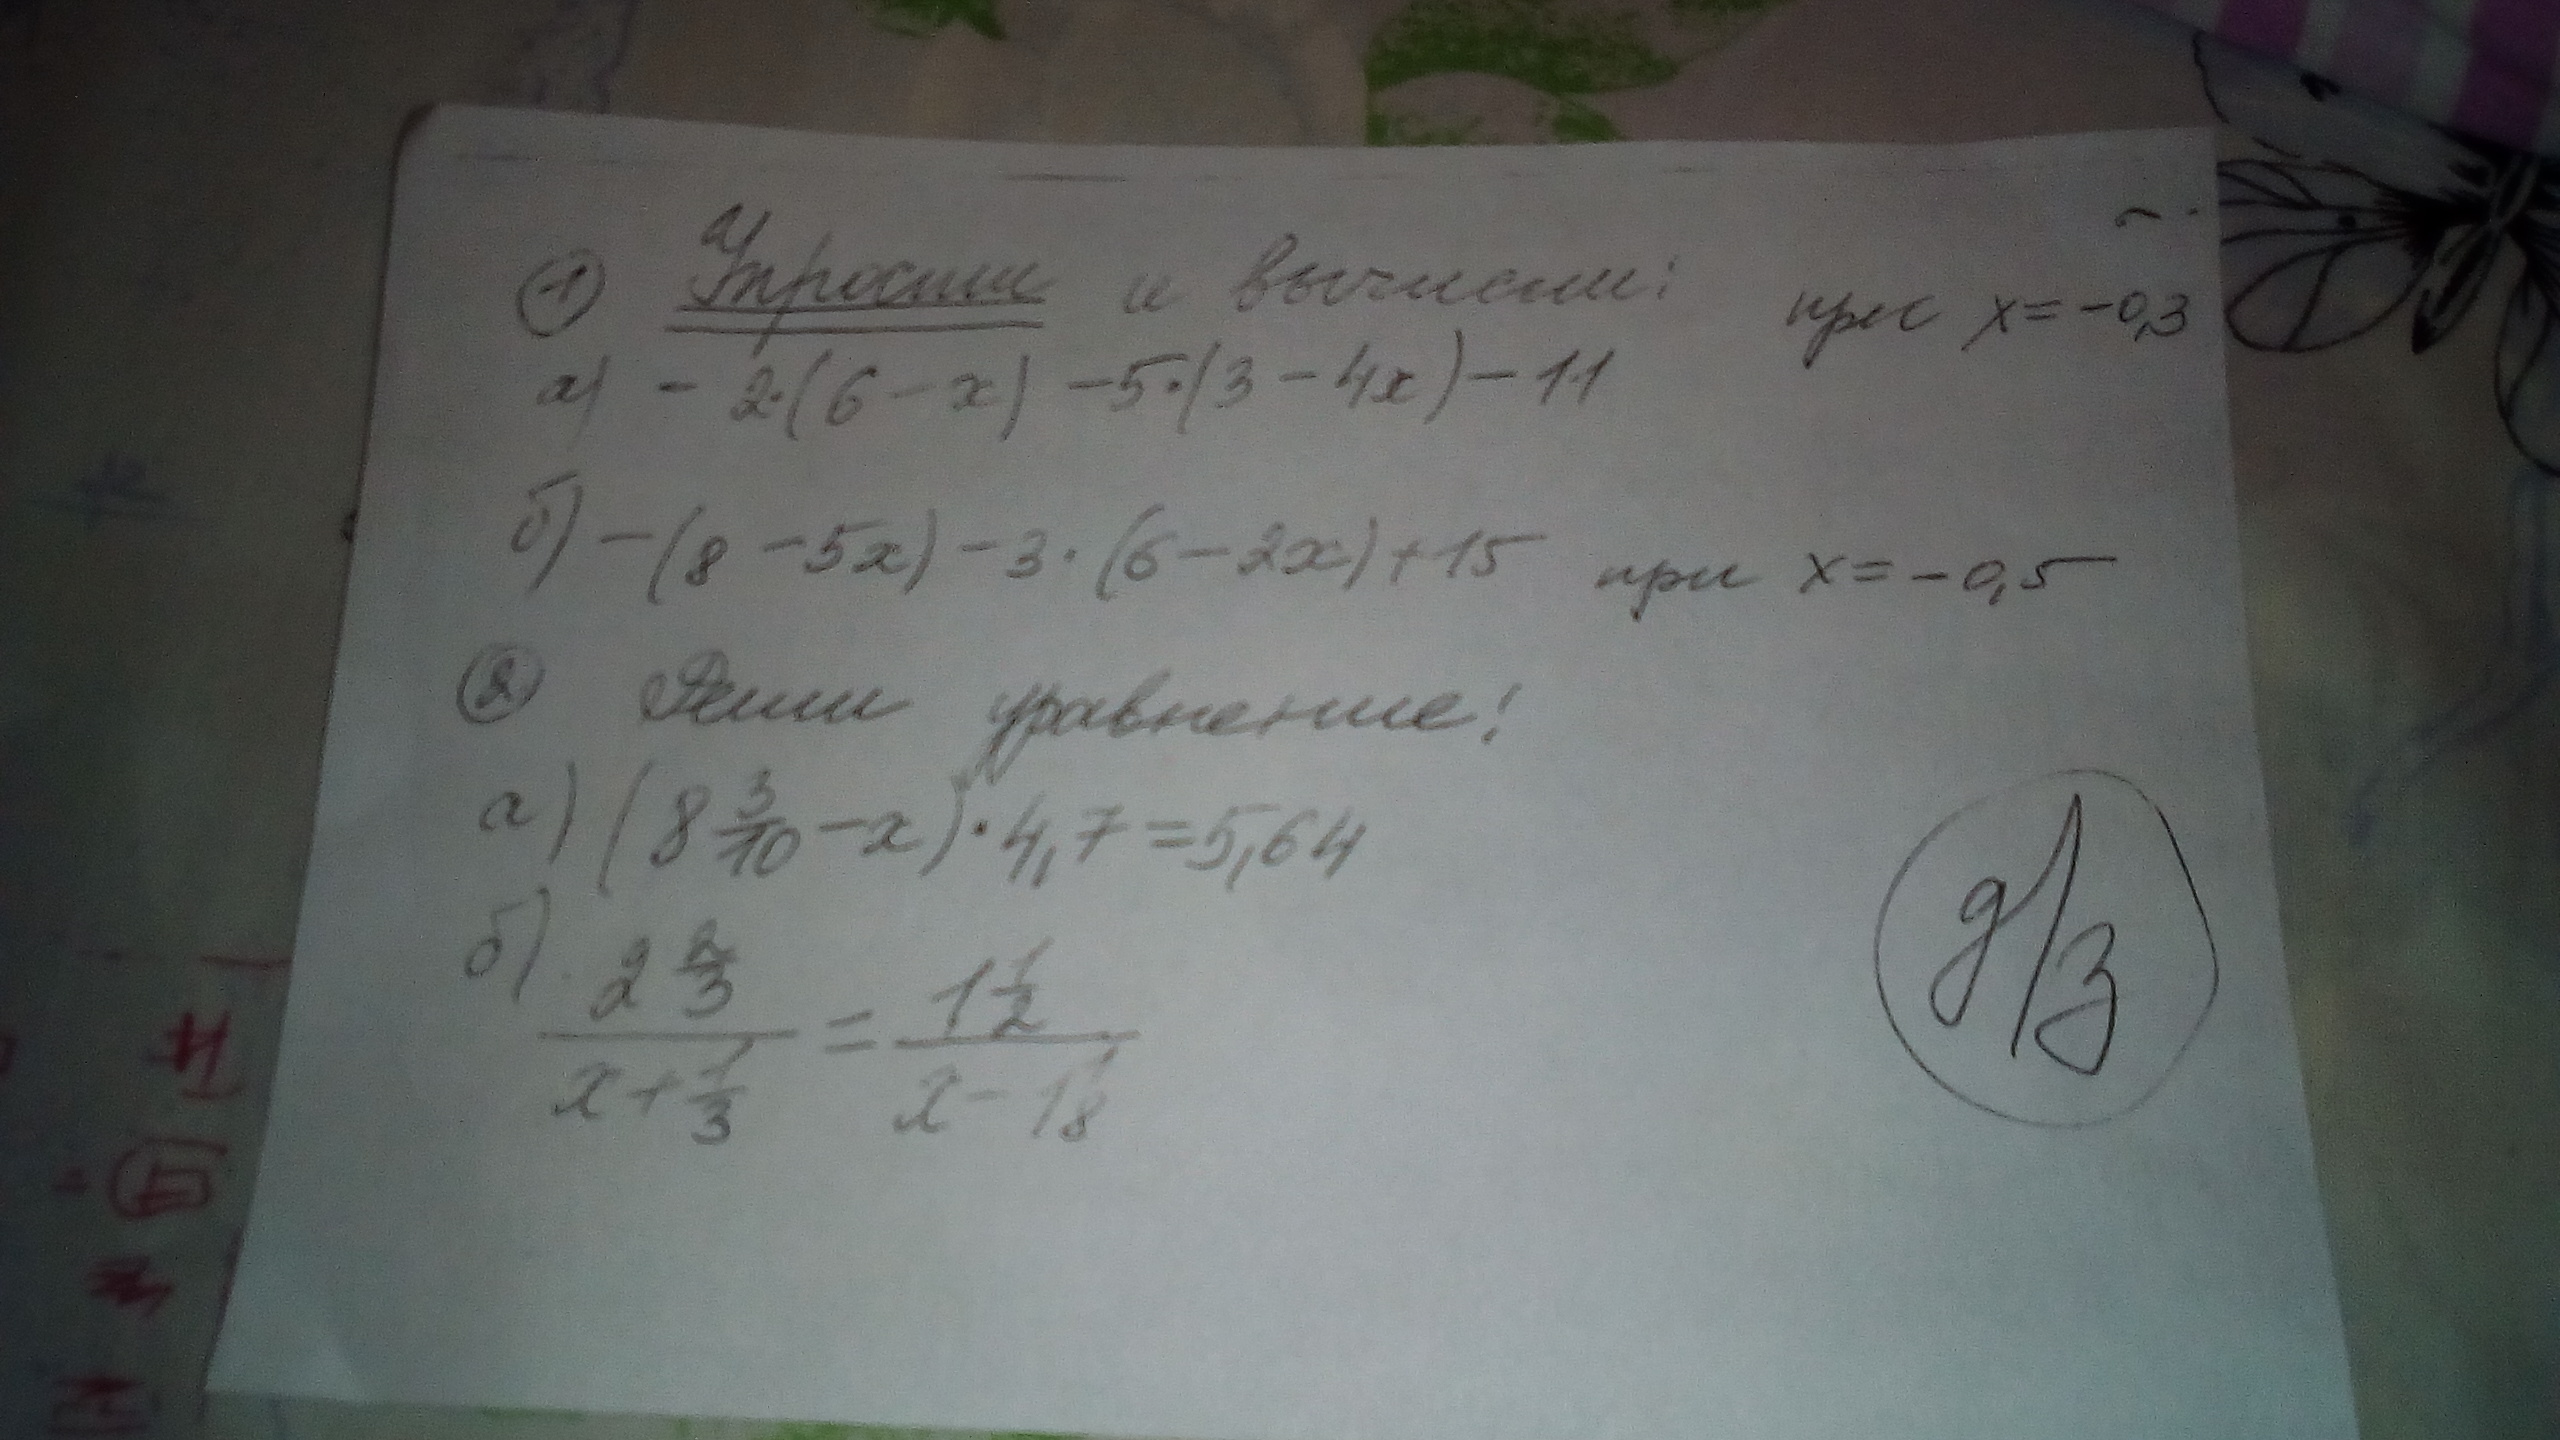 ① Упрости и вычисли: при x = -0,3
а) - 2·(6 - x) - 5·(3 - 4x) - 11
б) - (8 - 5x) - 3·(6 - 2x) + 15 при x = -0,5
② Реши уравнение:
а) (8 3/10 - x)·4,7 = 5,64
б) 2 2/3 / x + 1/3 = 1 1/2 / x - 1 1/8
д/з